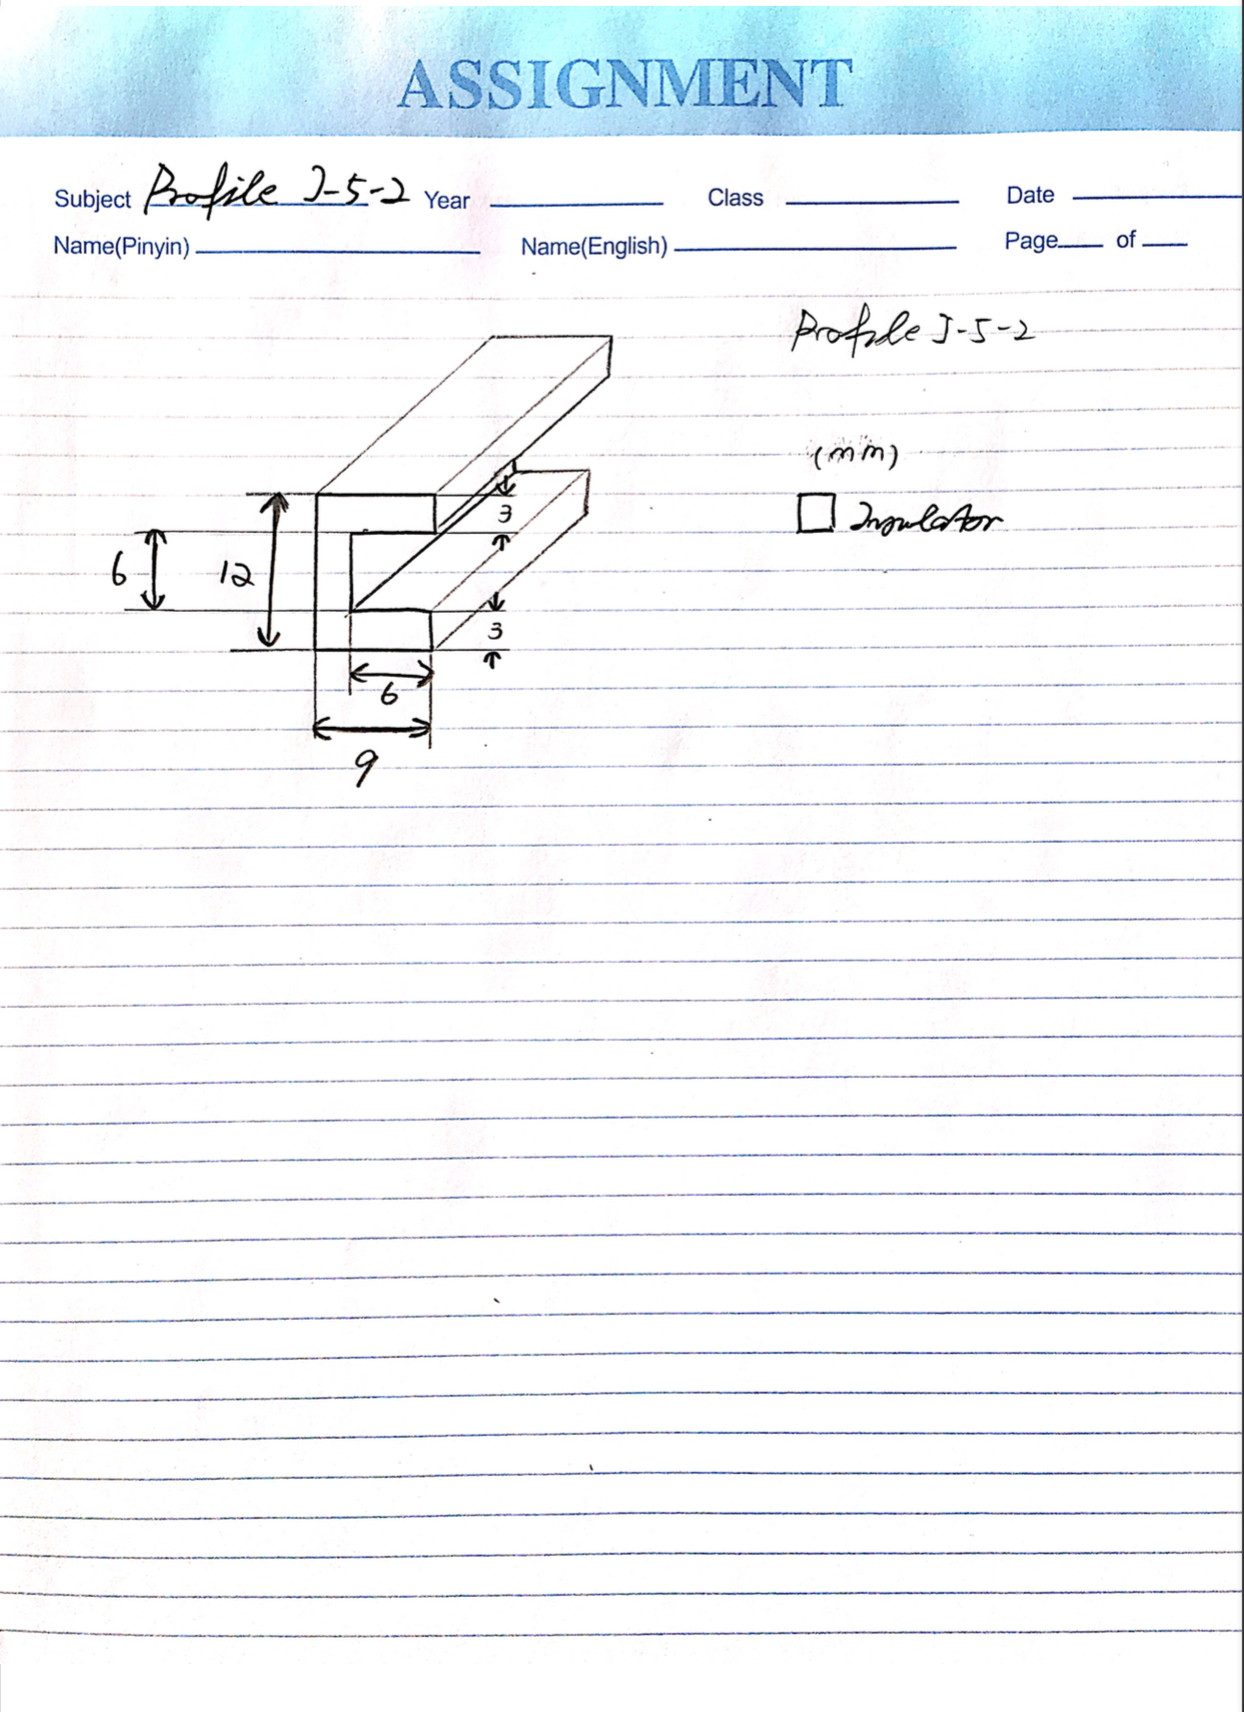 ASSIGNMENT
Subject Profile J-5-2 Year Class Date
Name(Pinyin) Name(English) Page of
Profile J-5-2
(mm)
Insulator
3
6
12
3
6
9